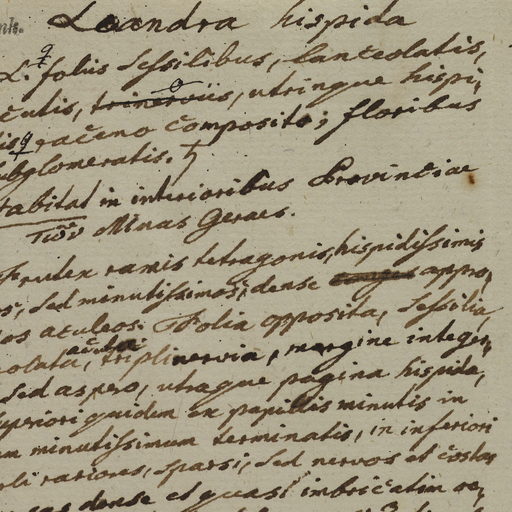 Leandra hispida
L. foliis sessilibus, lanceolatis,
trinerviis, utrinque hispi-
racemo composito; floribus
Habitat in interioribus Provinciae
Minas Geraes.
Frutex ramis tetragonis, hispidissimis
sed minutissimos, dense appro-
aculeos. Folia opposita, sessilia,
acuta
triplinervia, margine integer,
sed aspero, utraque pagina hispida,
superiori quidem ex papillis minutis in
minutissimum terminatis, in inferiori
rariores, sparsi, sed nervos et costas
dense et quasi imbricatim re-